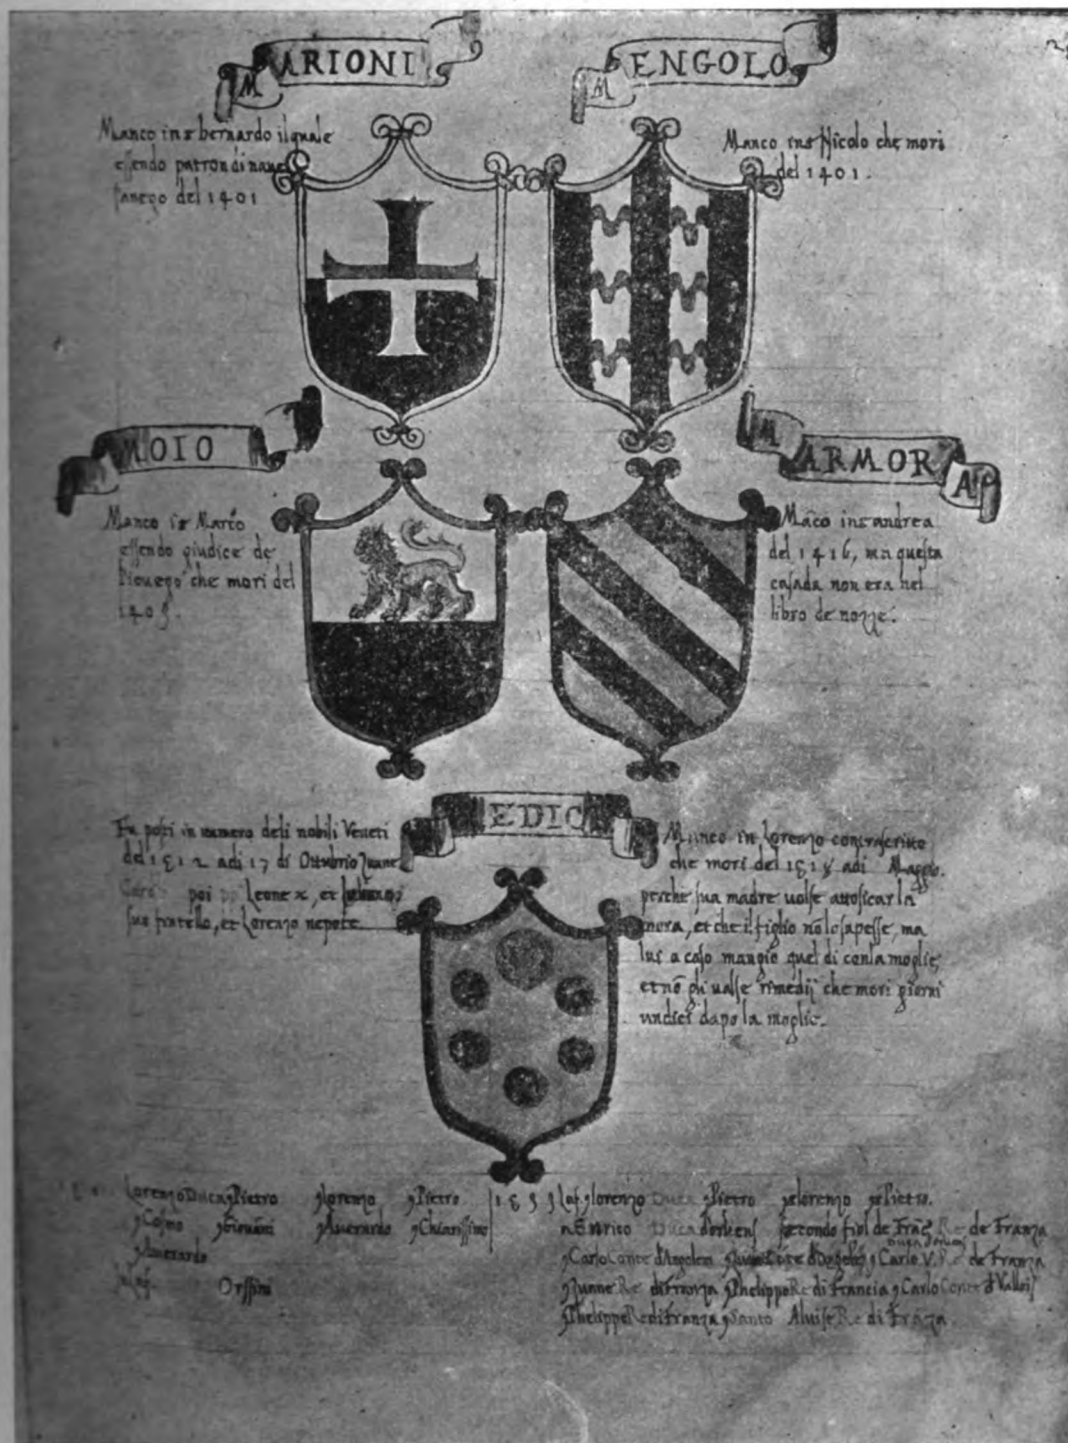 MARIONI
Manco in s bernardo il quale
essendo patron di nave
del 1401
MENGOLO
Manco in s Nicolo che mori
del 1401.
MOIO
Manco in s Marco
essendo giudice de
che mori del
140
MARMORA
Māco in s andrea
del 1416, ma questa
casada non era nel
libro de nozze.
EDIC
Fu posti in numero deli nobili Veneti
del 1512 adi 17 di Ottubrio Zuane
poi Leone x, et
suo fratello, et Lorenzo nepote
Manco in Lorenzo contrascritto
che mori del 151 adi Maggio.
perche sua madre volse attosicar la
nora, et che il figlio nō lo sapesse, ma
lui a caso mangio quel di con la moglie,
et nō gli valse rimedij che mori giorni
undici dapo la moglie.
Lorenzo Duca q Pietro q Lorenzo q Pietro
q Cosmo q Giovāni q Averardo q Chiarissimo
q Averardo
Orssini
1533 q lorenzo Duca q Pietro q lorenzo q Pietro.
n Enrico Duca d'orliens secondo fiol de Re de Franza
q Carlo Conte d'Angolem q Carlo V. Re de Franza
q Zuanne Re di Franza q Phelippo Re di Francia q Carlo Conte d Vallois
q Phelippe Re di Franza q Santo Aluise Re di Frāza.